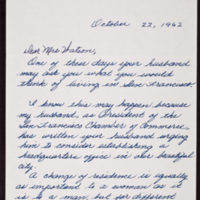 October 22, 1962
Dear Mrs. Watson,
One of these days your husband
may ask you what you would
think of living in San Francisco.
I know this may happen because
my husband, as President of the
San Francisco Chamber of Commerce,
has written your husband urging
him to consider establishing a
headquarters office in our beautiful
city.
A change of residence is equally
as important to a woman as it
is to a man but for different